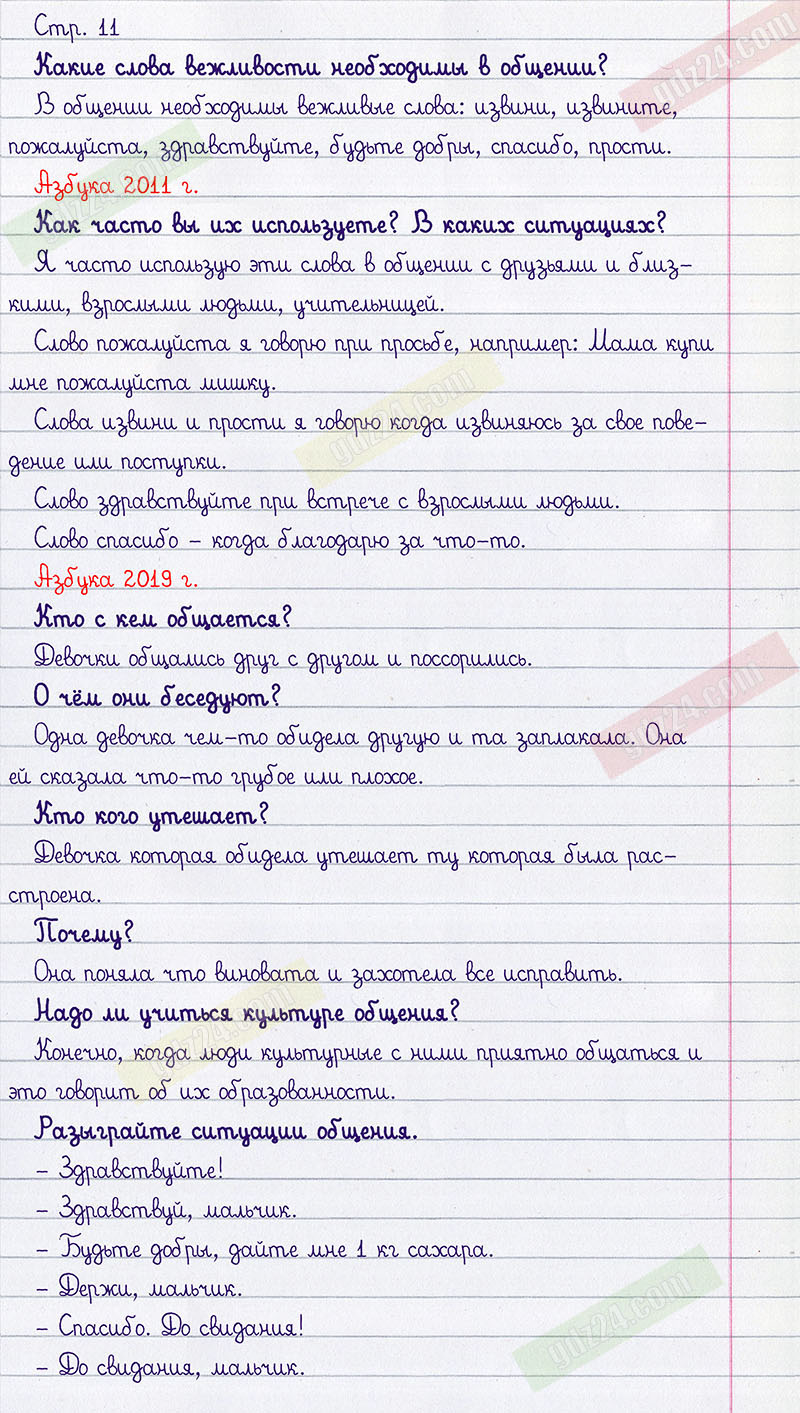 Стр. 11
Какие слова вежливости необходимы в общении?
В общении необходимы вежливые слова: извини, извините,
пожалуйста, здравствуйте, будьте добры, спасибо, прости.
Азбука 2011 г.
Как часто вы их используете? В каких ситуациях?
Я часто использую эти слова в общении с друзьями и близ-
кими, взрослыми людьми, учительницей.
Слово пожалуйста я говорю при просьбе, например: Мама купи
мне пожалуйста мишку.
Слова извини и прости я говорю когда извиняюсь за свое пове-
дение или поступки.
Слово здравствуйте при встрече с взрослыми людьми.
Слово спасибо - когда благодарю за что-то.
Азбука 2019 г.
Кто с кем общается?
Девочки общались друг с другом и поссорились.
О чём они беседуют?
Одна девочка чем-то обидела другую и та заплакала. Она
ей сказала что-то грубое или плохое.
Кто кого утешает?
Девочка которая обидела утешает ту которая была рас-
строена.
Почему?
Она поняла что виновата и захотела все исправить.
Надо ли учиться культуре общения?
Конечно, когда люди культурные с ними приятно общаться и
это говорит об их образованности.
Разыграйте ситуации общения.
- Здравствуйте!
- Здравствуй, мальчик.
- Будьте добры, дайте мне 1 кг сахара.
- Держи, мальчик.
- Спасибо. До свидания!
- До свидания, мальчик.
gdz24.com
gdz24.com
gdz24.com
gdz24.com
gdz24.com
gdz24.com